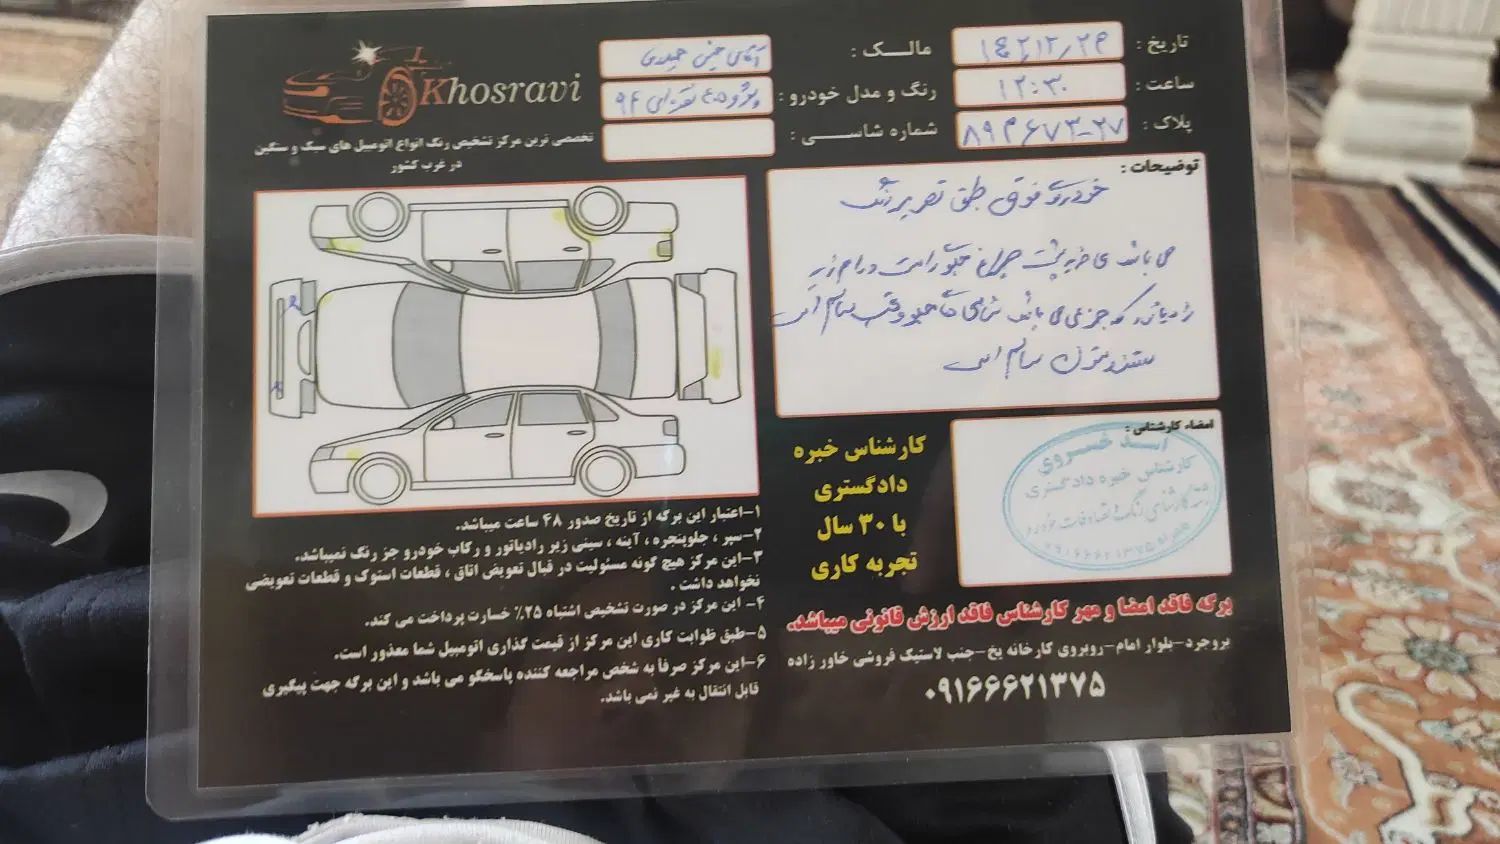 Khosravi
تخصصی ترین مرکز تشخیص رنگ انواع اتومبیل های سبک و سنگین
در غرب کشور
تاریخ :
ساعت : ۱۲:۳۰
پلاک : ۸۹ م ۶۷۳-۲۷
مالک : آقای
رنگ و مدل خودرو : پژو ۴۰۵ نقره ای ۹۴
شماره شاسی :
توضیحات :
خودروی فوق طبق تصویر رنگ
می باشد
که جزئی می باشد سالم است
ستون سالم است
امضاء کارشناس :
اسد خسروی
کارشناس خبره دادگستری
رشته کارشناسی رنگ و تصادفات خودرو
همراه ۰۹۱۶۶۶۲۱۳۷۵
کارشناس خبره
دادگستری
با ۳۰ سال
تجربه کاری
۱-اعتبار این برگه از تاریخ صدور ۴۸ ساعت میباشد.
۲-سپر ، جلوپنجره ، آینه ، سینی زیر رادیاتور و رکاب خودرو جز رنگ نمیباشد.
۳-این مرکز هیچ گونه مسئولیت در قبال تعویض اتاق ، قطعات استوک و قطعات تعویضی
نخواهد داشت .
۴- این مرکز در صورت تشخیص اشتباه ۲۵٪ خسارت پرداخت می کند.
۵-طبق ظوابت کاری این مرکز از قیمت گذاری اتومبیل شما معذور است.
۶-این مرکز صرفا به شخص مراجعه کننده پاسخگو می باشد و این برگه جهت پیگیری
قابل انتقال به غیر نمی باشد.
برگه فاقد امضا و مهر کارشناس فاقد ارزش قانونی میباشد.
بروجرد-بلوار امام-روبروی کارخانه یخ-جنب لاستیک فروشی خاور زاده
۰۹۱۶۶۶۲۱۳۷۵